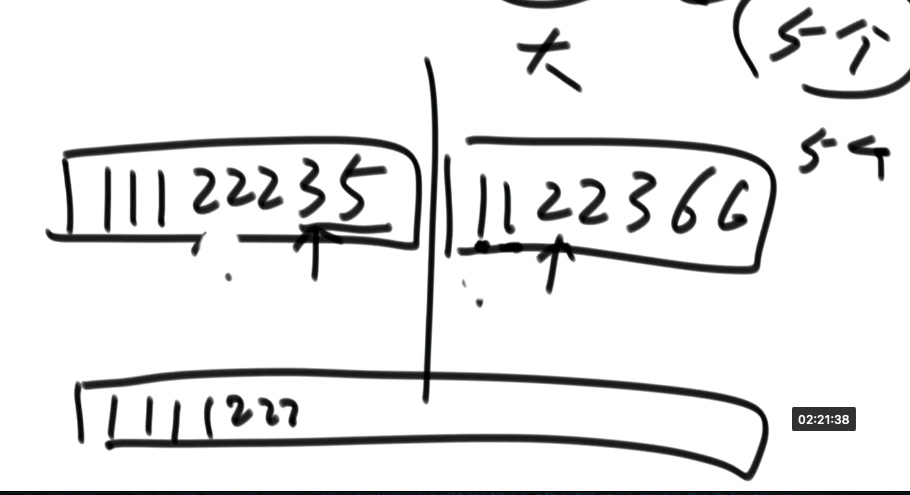 大
5个
5个
11122235
1122366
1111222
02:21:38